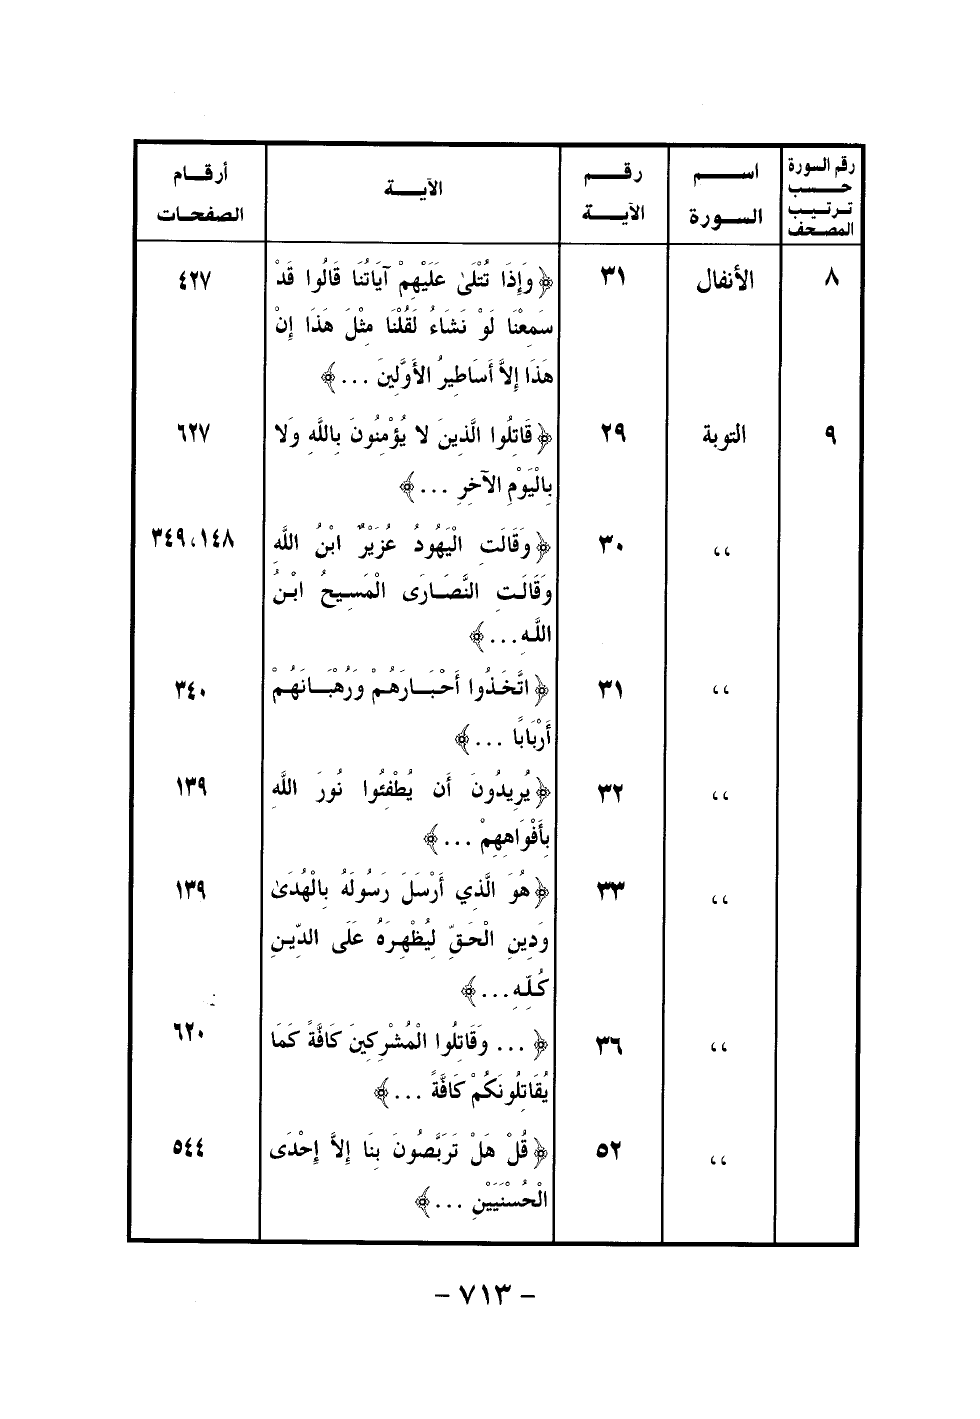 رقم السورة حسب ترتيب المصحف | اسم السورة | رقم الآية | الآية | أرقام الصفحات
٨ | الأنفال | ٣١ | ﴿وَإِذَا تُتْلَىٰ عَلَيْهِمْ آيَاتُنَا قَالُوا قَدْ | ٤٢٧
سَمِعْنَا لَوْ نَشَاءُ لَقُلْنَا مِثْلَ هَذَا إِنْ
هَذَا إِلاَّ أَسَاطِيرُ الأَوَّلِينَ ...﴾
٩ | التوبة | ٢٩ | ﴿قَاتِلُوا الَّذِينَ لا يُؤْمِنُونَ بِاللَّهِ وَلا | ٦٢٧
بِالْيَوْمِ الآخِرِ ...﴾
،، | ٣٠ | ﴿وَقَالَتِ الْيَهُودُ عُزَيْرٌ ابْنُ اللَّهِ | ١٤٨، ٣٤٩
وَقَالَتِ النَّصَارَى الْمَسِيحُ ابْنُ
اللَّهِ...﴾
،، | ٣١ | ﴿اتَّخَذُوا أَحْبَارَهُمْ وَرُهْبَانَهُمْ | ٣٤٠
أَرْبَابًا ...﴾
،، | ٣٢ | ﴿يُرِيدُونَ أَن يُطْفِئُوا نُورَ اللَّهِ | ١٣٩
بِأَفْوَاهِهِمْ ...﴾
،، | ٣٣ | ﴿هُوَ الَّذِي أَرْسَلَ رَسُولَهُ بِالْهُدَىٰ | ١٣٩
وَدِينِ الْحَقِّ لِيُظْهِرَهُ عَلَى الدِّينِ
كُلِّهِ...﴾
،، | ٣٦ | ﴿... وَقَاتِلُوا الْمُشْرِكِينَ كَافَّةً كَمَا | ٦٢٠
يُقَاتِلُونَكُمْ كَافَّةً ...﴾
،، | ٥٢ | ﴿قُلْ هَلْ تَرَبَّصُونَ بِنَا إِلاَّ إِحْدَى | ٥٤٤
الْحُسْنَيَيْنِ ...﴾
- ٧١٣ -